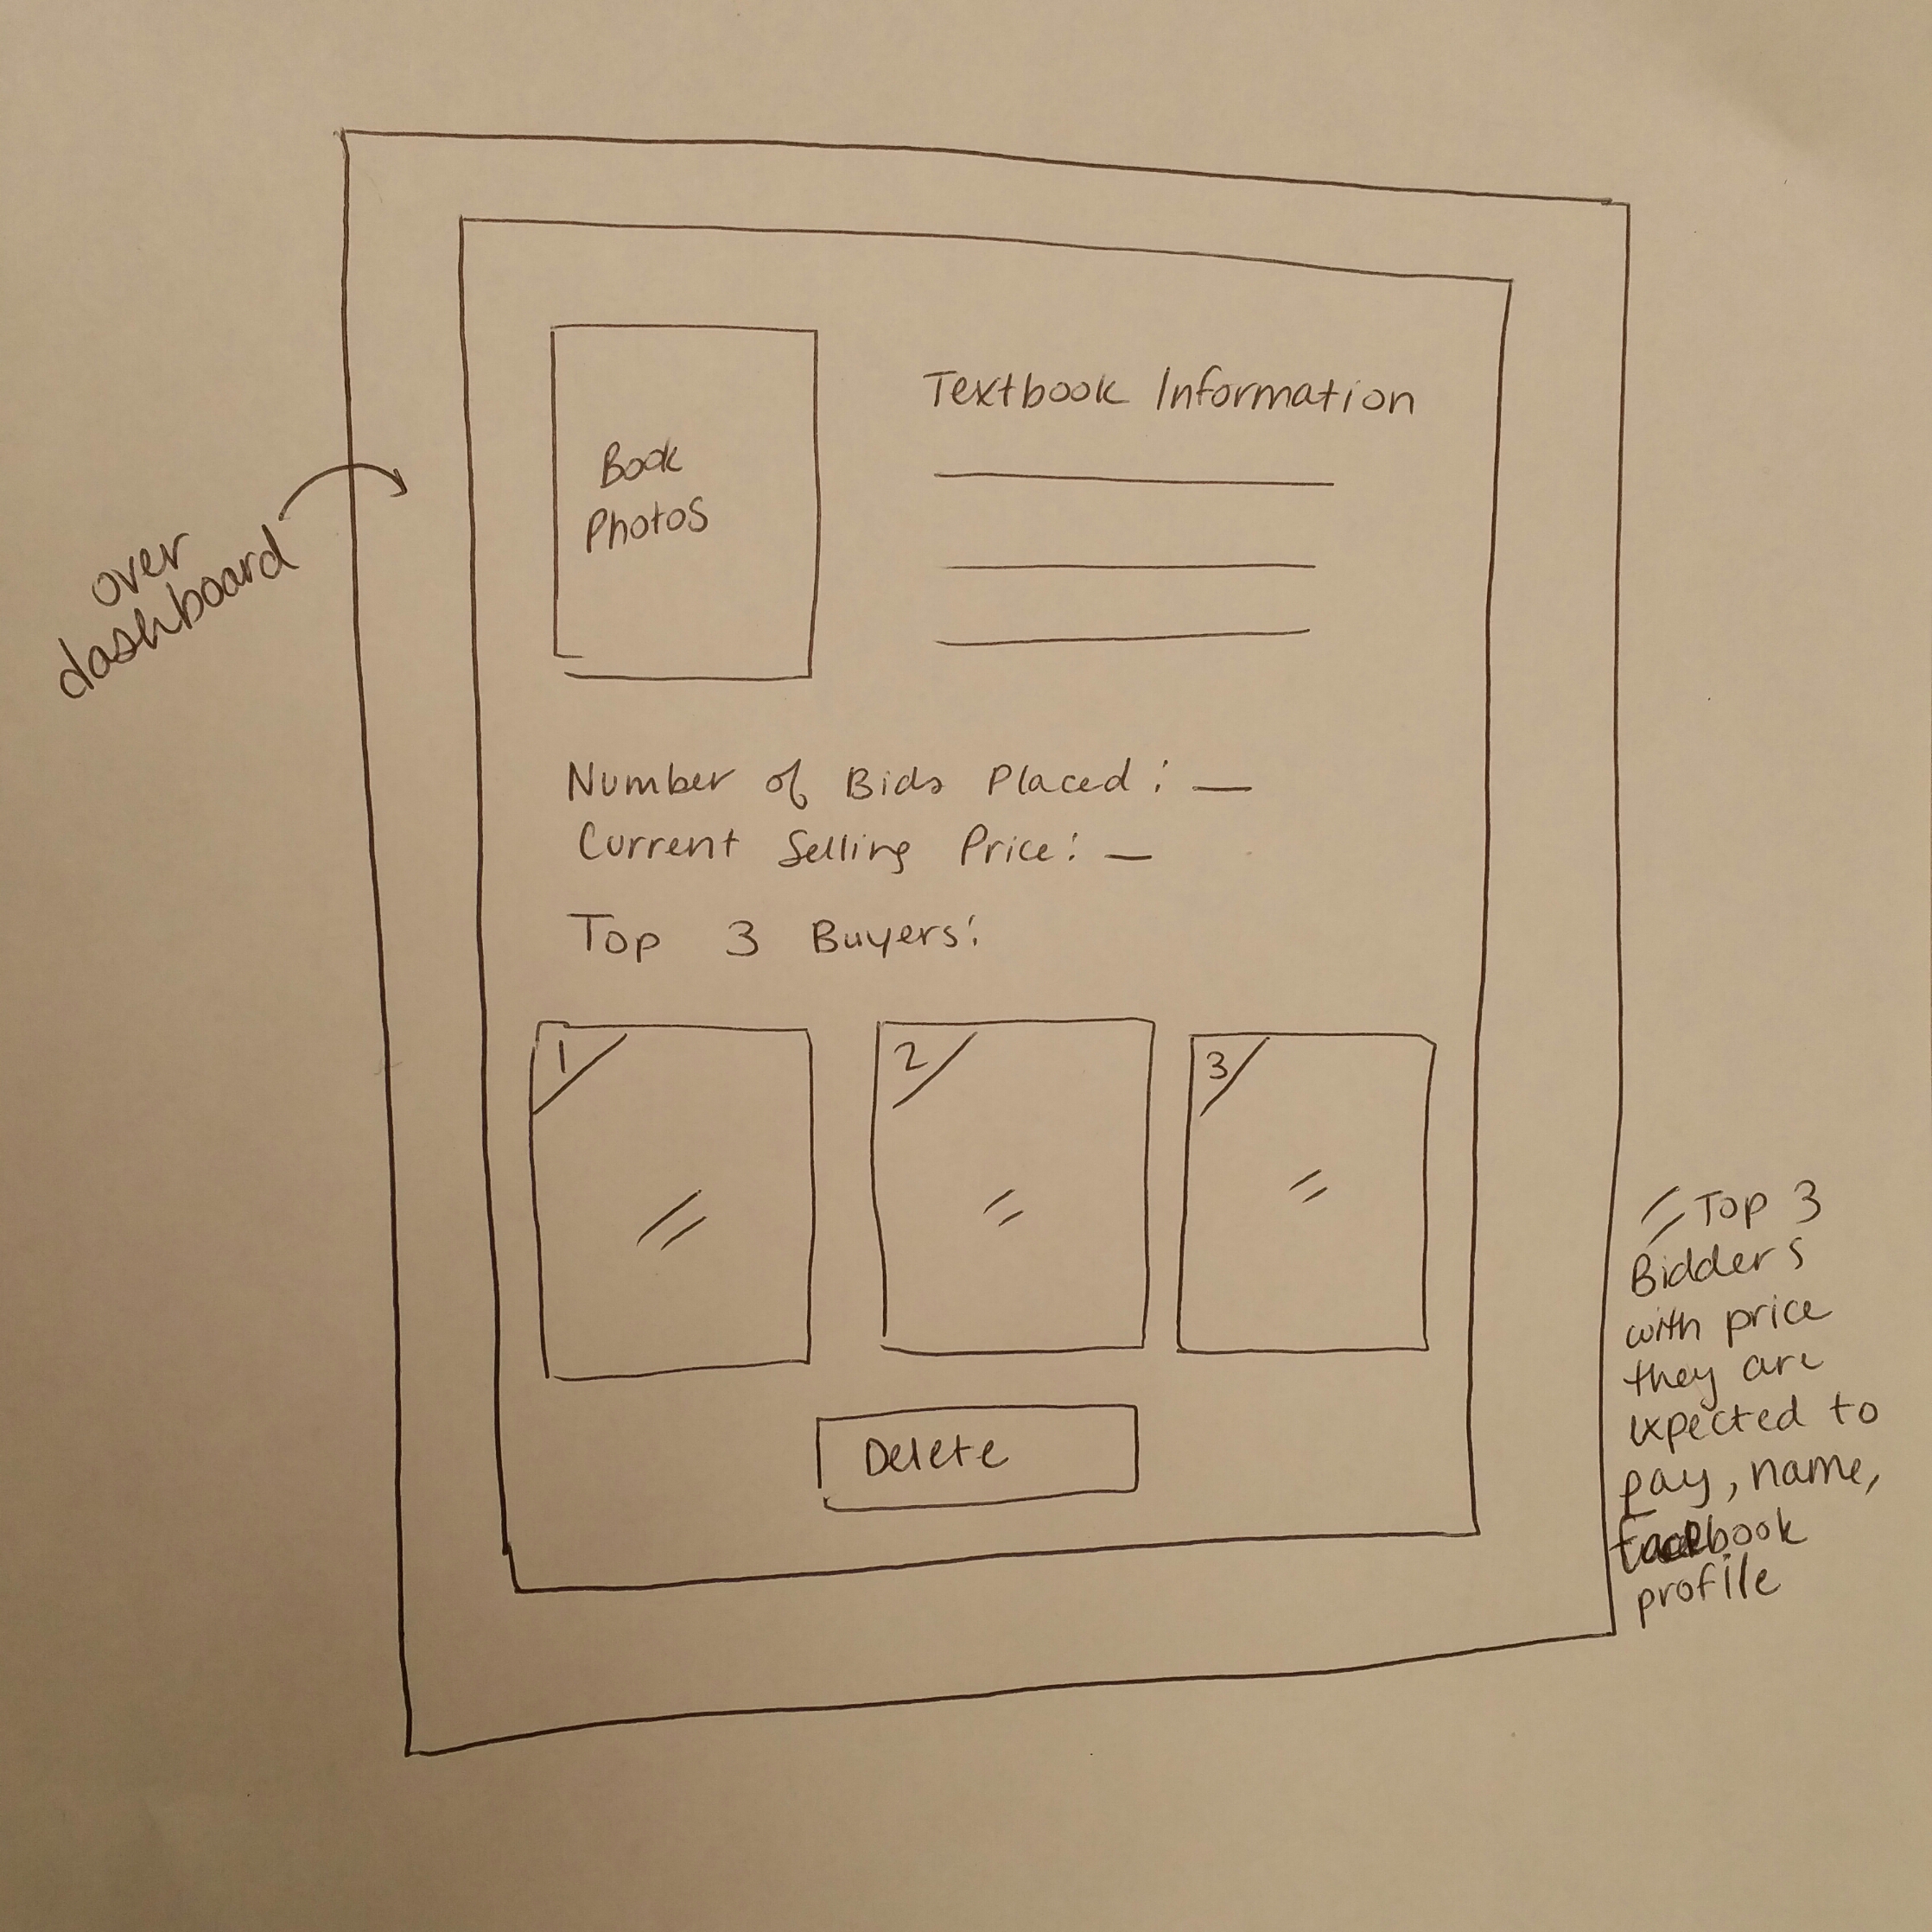 over
dashboard
Book
Photos
Textbook Information
Number of Bids Placed: —
Current Selling Price: —
Top 3 Buyers:
1
2
3
Delete
Top 3
Bidders
with price
they are
expected to
pay, name,
facebook
profile